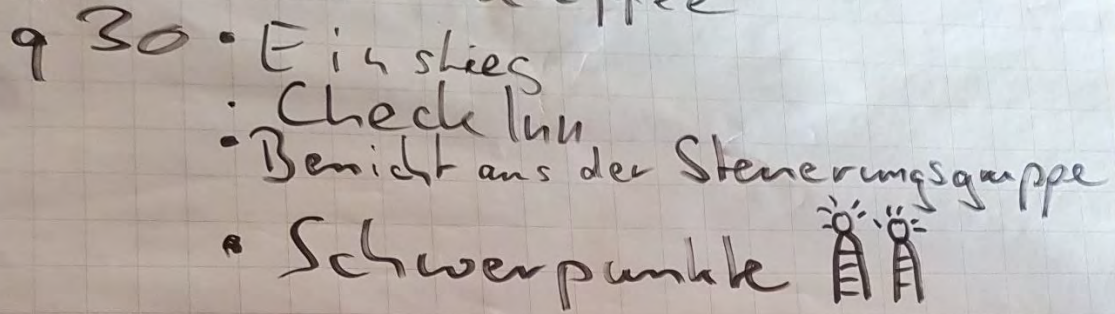 9 30 • Einstieg
• Check Inn
• Bericht aus der Steuerungsgruppe
• Schwerpunkte